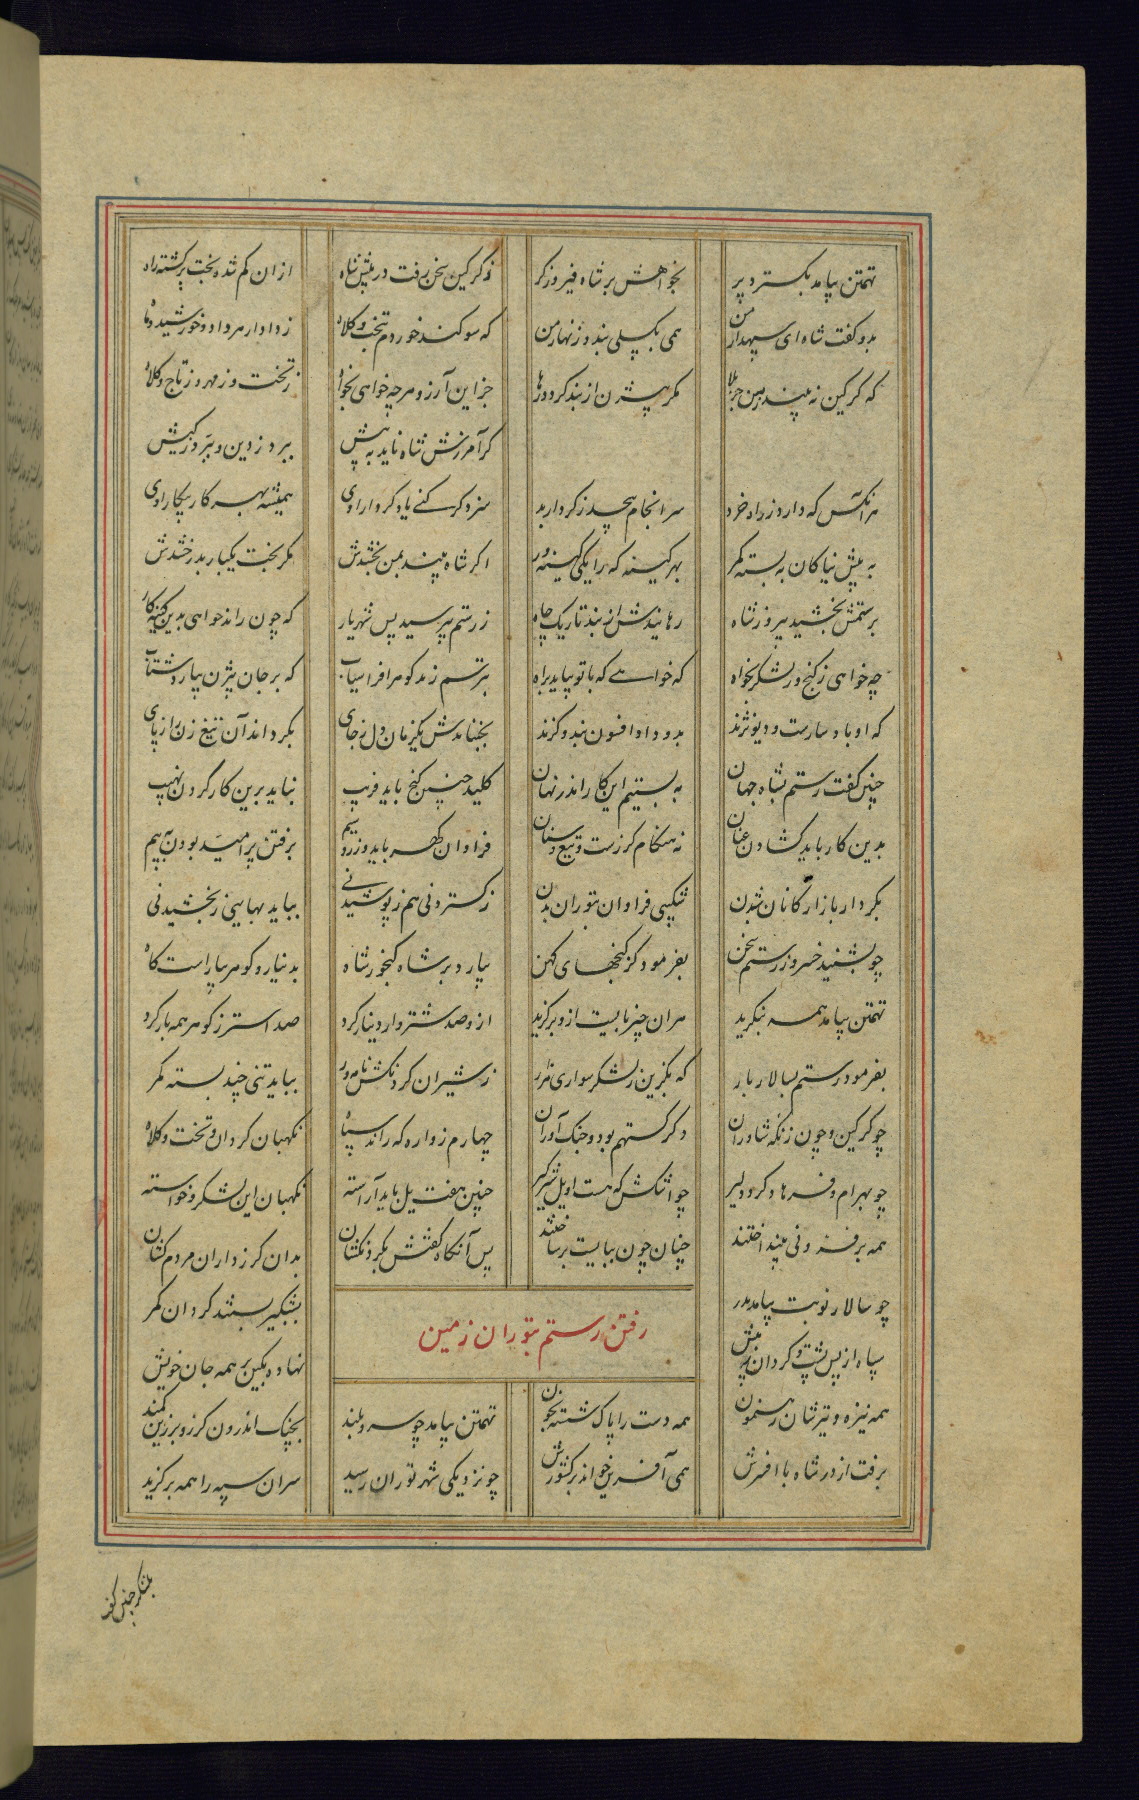 تهمتن بیامد بگسترد پر بخواهش بر شاه فیروزگر ز گرگین سخن رفت در پیش شاه از ان گم شده بخت برگشته راه
بدو گفت شاه ای سپهدار من همی بگسلی بند و زنهار من که سوگند خوردم بتخت و کلاه ز دادار مرداد و خورشید و ماه
که گرگین نه بیند ز من جز بلا مگر بیژن از بند گردد رها جز این آرزو هر چه خواهی بخواه ز تخت و ز مهر و ز تاج و کلاه
گر آمرزش شاه ناید به پیش ببرد ز دین و ز کیش
هر انکس که دارد ز راه خرد سرانجام پیچد ز کردار بد سزد گر کنی یاد کردار اوی همیشه بهر کار اوی
به پیش نیاکان به بسته کمر بهر کینه که را یکی کینه ور اگر شاه بیند بمن بخشدش مگر بخت یکبار بدرخشدش
برستمش بخشید پیروز شاه رهانیدش از بند تاریک چاه ز رستم بپرسید پس شهریار که چون راند خواهی بدین کینه کار
چه خواهی ز گنج و ز لشکر بخواه که خواهی که با تو بیاید براه بترسم ز بد گوهر افراسیاب که بر جان بیژن بیارد شتاب
که او باد سارست و دیو نژند بدو داد افسون بند و گزند بجنباندش یکزمان دل ز جای بگرداند آن تیغ زن را ز پای
چنین گفت رستم بشاه جهان به بستیم این کار اندر نهان کلید چنین گنج باید فریب نباید برین کار کردن نهیب
بدین کار باید کشادن عنان نه هنگام گرزست و تیغ و سنان فراوان گهر باید و زر و سیم برفتن پر امید بودن به بیم
بکردار بازارکانان شدن شکیبی فراوان بتوران بدن ز گستردنی هم ز پوشیدنی بباید بهایی ز بخشیدنی
چو بشنید خسرو ز رستم سخن بفرمود کز گنجهای کهن بیارد بر شاه گنجور شاه بدینار و گوهر بیاراست گاه
تهمتن بیامد همه بنگرید هر ان چیز بایست ازو برگزید ازو صد شتروار دینار کرد صد استر ز گوهر همه بار کرد
بفرمود رستم بسالار بار که بگزین ز لشکر سواری هزار ز شیران گردنکش نامور بباید تنی چند بسته کمر
چو گرگین و چون زنگه شاوران دگر گستهم بود و جنگ آوران چهارم زواره که راند سپاه نگهبان گردان و تخت و کلاه
چو بهرام و فرهاد گرد دلیر چو اشکش که هست او یل شیرگیر چنین هفت یل باید آراسته نگهبان این لشکر و خواسته
همه برفزونی بینداختند چنان چون ببایست برساختند پس آنگاه گفتش بگردنکشان بدان گرزداران مردم کشان
رفتن رستم بتوران زمین
چو سالار نوبت بیامد بدر بشبگیر بستند گردان کمر
سپاه از پس پشت و گردان به پیش نهاده بکین بر همه جان خویش
همه نیزه و تیرشان رهنمون همه دست را پاک شسته بخون تهمتن بیامد چو سرو بلند بچنگ اندرون گرز و بر زین کمند
برفت از در شاه با افرش همی آفرین خواند بر کشورش چو نزدیکی شهر توران رسید سران سپه را همه برگزید
بلشکر چنین گفت